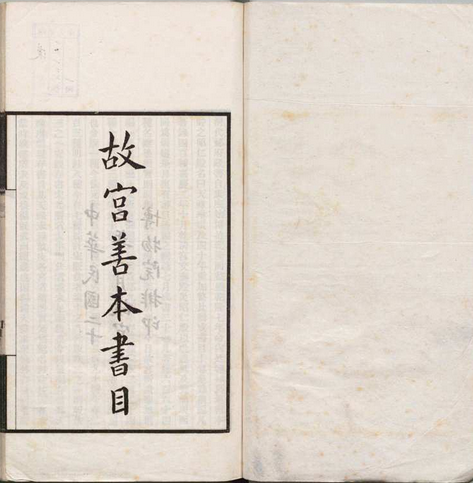 故宮善本書目